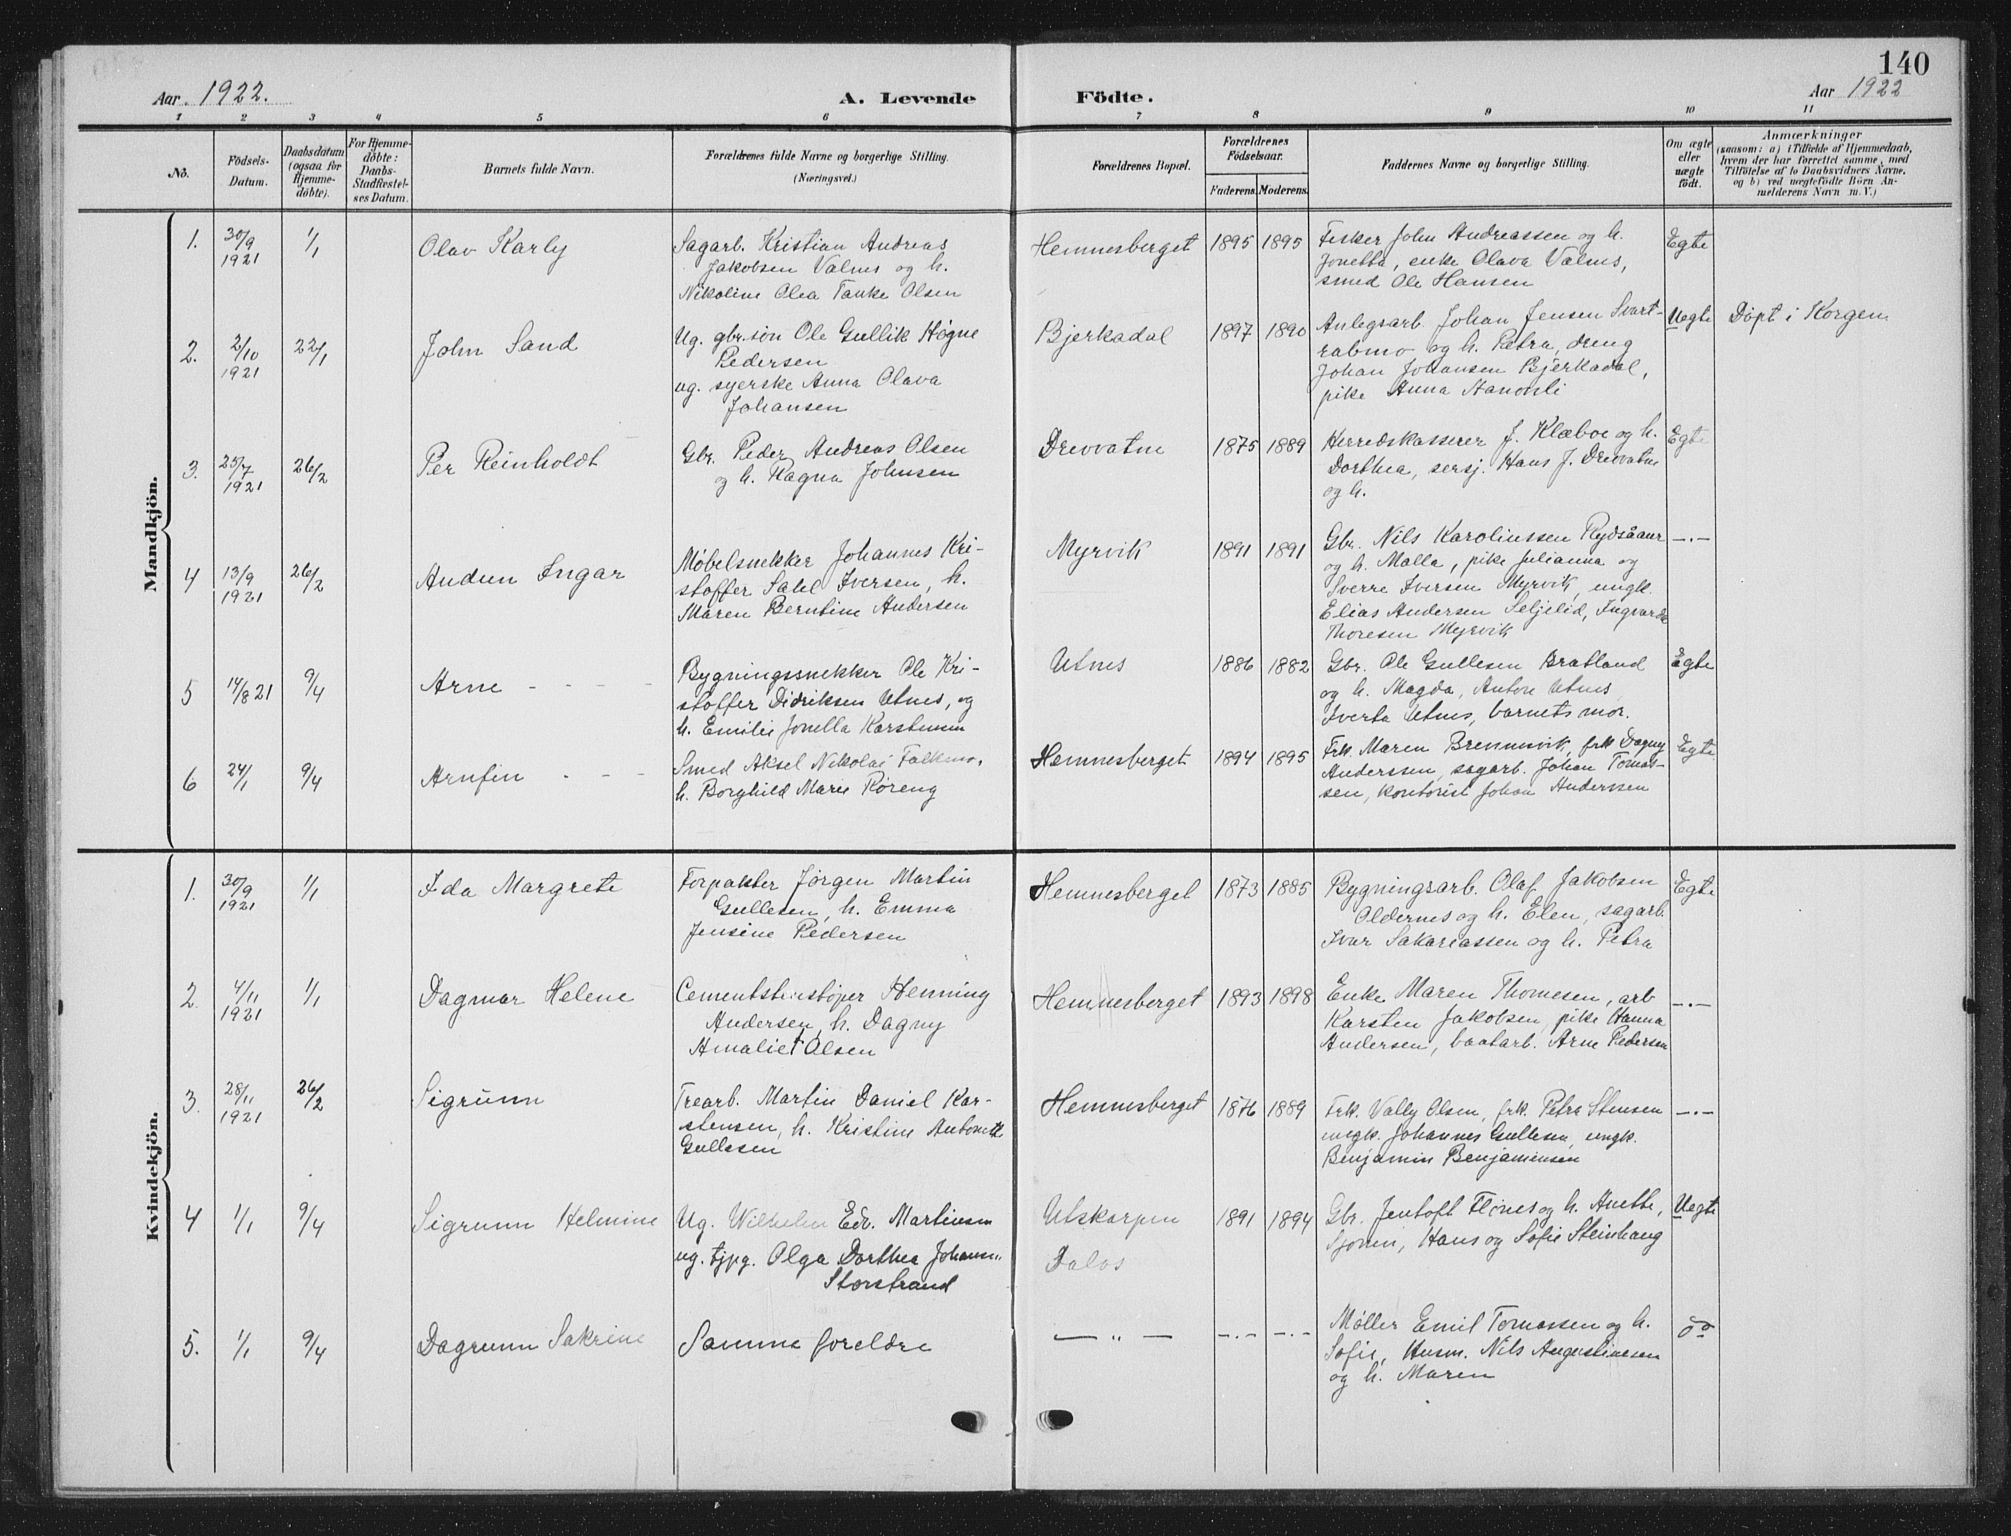 140
Aar 1922. A. Levende Födte. Aar 1922
1 2 3 4 5 6 7 8 9 10 11
No.
Födsels-
Datum.
Daabsdatum
(ogsaa for
Hjemme-
döbte).
For Hjemme-
döbte:
Daabs-
Stadfæstel-
ses Datum.
Barnets fulde Navn.
Forældrenes fulde Navne og borgerlige Stilling.
(Næringsvei.)
Forældrenes Bopæl.
Forældrenes
Födselsaar.
Faderens. Moderens.
Faddernes Navne og borgerlige Stilling.
Om ægte
eller
uægte
födt.
Anmærkninger
(saasom: a) i Tilfælde af Hjemmedaab,
hvem der har forrettet samme, med
Tilföielse af to Daabsvidners Navne,
og b) ved uægtefödte Börn An-
melderens Navn m. V.)
Mandkjön.
1. 30/9 1921 1/1 Olav Karly
Sagarb. Kristian Andreas
Jakobsen Valnes og h.
Nikoline Olea Tanke Olsen
Hemnesberget 1895 1895
Fisker John Andreassen og h.
Jonetta, enke Olava Valnes,
smed Ole Hansen
Egte
2. 2/10 1921 22/1 John Sand
Ug. gbr.søn Ole Gullik Høgne
Pedersen
ug. syerske Anna Olava
Johansen
Bjerkadal 1897 1890
Anlegsarb. Johan Jensen Svart-
rabmo og h. Petra, dreng
Johan Johansen Bjerkadal,
pike Anna
Uegte Døpt i Korgen
3. 25/7 1921 26/2 Per Reinholdt
Gbr. Peder Andreas Olsen
og h. Ragna Johnsen
Drevvatne 1875 1889
Herredskasserer J. Klæboe og h.
Dorthea, sersj. Hans J. Drevvatne
og h.
Egte
4 13/9 1921 26/2 Audun Ingar
Møbelsnekker Johannes Kri-
stoffer Salel Iversen, h.
Maren Berntine Andersen
Myrvik 1891 1891
Gbr. Nils Karolinssen Rydsåaur
og h. Malla, pike Julianna og
Sverre Iversen Myrvik, ungk.
Elias Andersen Seljelid, Ingvarda
Thoresen Myrvik
-.-
5 14/8 21 9/4 Arne - - - -
Bygningssnekker Ole Kri-
stoffer Didriksen Utnes, og
h. Emilie Jonella Karstensen
Utnes 1886 1882
Gbr. Ole Gullesen Bratland
og h. Magda, Anton Utnes
Iverta Utnes, barnets mor.
Egte
6 24/1 9/4 Arnfin - - -
Smed Aksel Nikolai Falkmo,
h. Borghild Marie Røreng
Hemnesberget 1894 1895
Frk. Maren Brennesvik, frk Dagny
Anderssen, sagarb. Johan Tomas-
sen, kontorist Johan Anderssen
Egte
Kvindekjön.
1. 30/9 1921 1/1 Ida Margrete
Forpakter Jørgen Martin
Gullesen, h. Emma
Jensine Pedersen
Hemnesberget 1873 1885
Bygningsarb. Olaf Jakobsen
Oldernes og h. Elen, sagarb.
Ivar Sakariassen og h. Petra
Egte
2. 4/11 1921 1/1 Dagmar Helene
Cementstenstøper Henning
Andersen, h. Dagny
Amalie Olsen
Hemnesberget 1893 1898
Enke Maren Thomesen, arb
Karsten Jakobsen, pike Hanna
Andersen, baatarb. Arne Pedersen
-.-
3. 28/11 1921 26/2 Sigrunn
Trearb. Martin Daniel Kar-
stensen, h. Kristine Antonette
Gullesen
Hemnesberget 1876 1889
Frk. Vally Olsen, frk. Petra Stensen
ungk. Johannes Gullesen, ungk.
Benjamin Benjaminsen
-.-
4 1/1 9/4 Sigrunn Helmine
Ug. Wilhelm Edv. Martinsen
ug. tjpg. Olga Dorthea Johans..
Storstrand
Utskarpen
Dalos
1891 1894
Gbr. Jentoft Flønes og h. Anette,
Sjonin, Hans og Sofie Steinhaug
Uegte
5. 1/1 9/4 Dagrunn Sakrine
Samme foreldre
— " — -.- -.-
Møller Emil Tomassen og h.
Sofie, Husm. Nils Augustinesen
og h. Maren
do